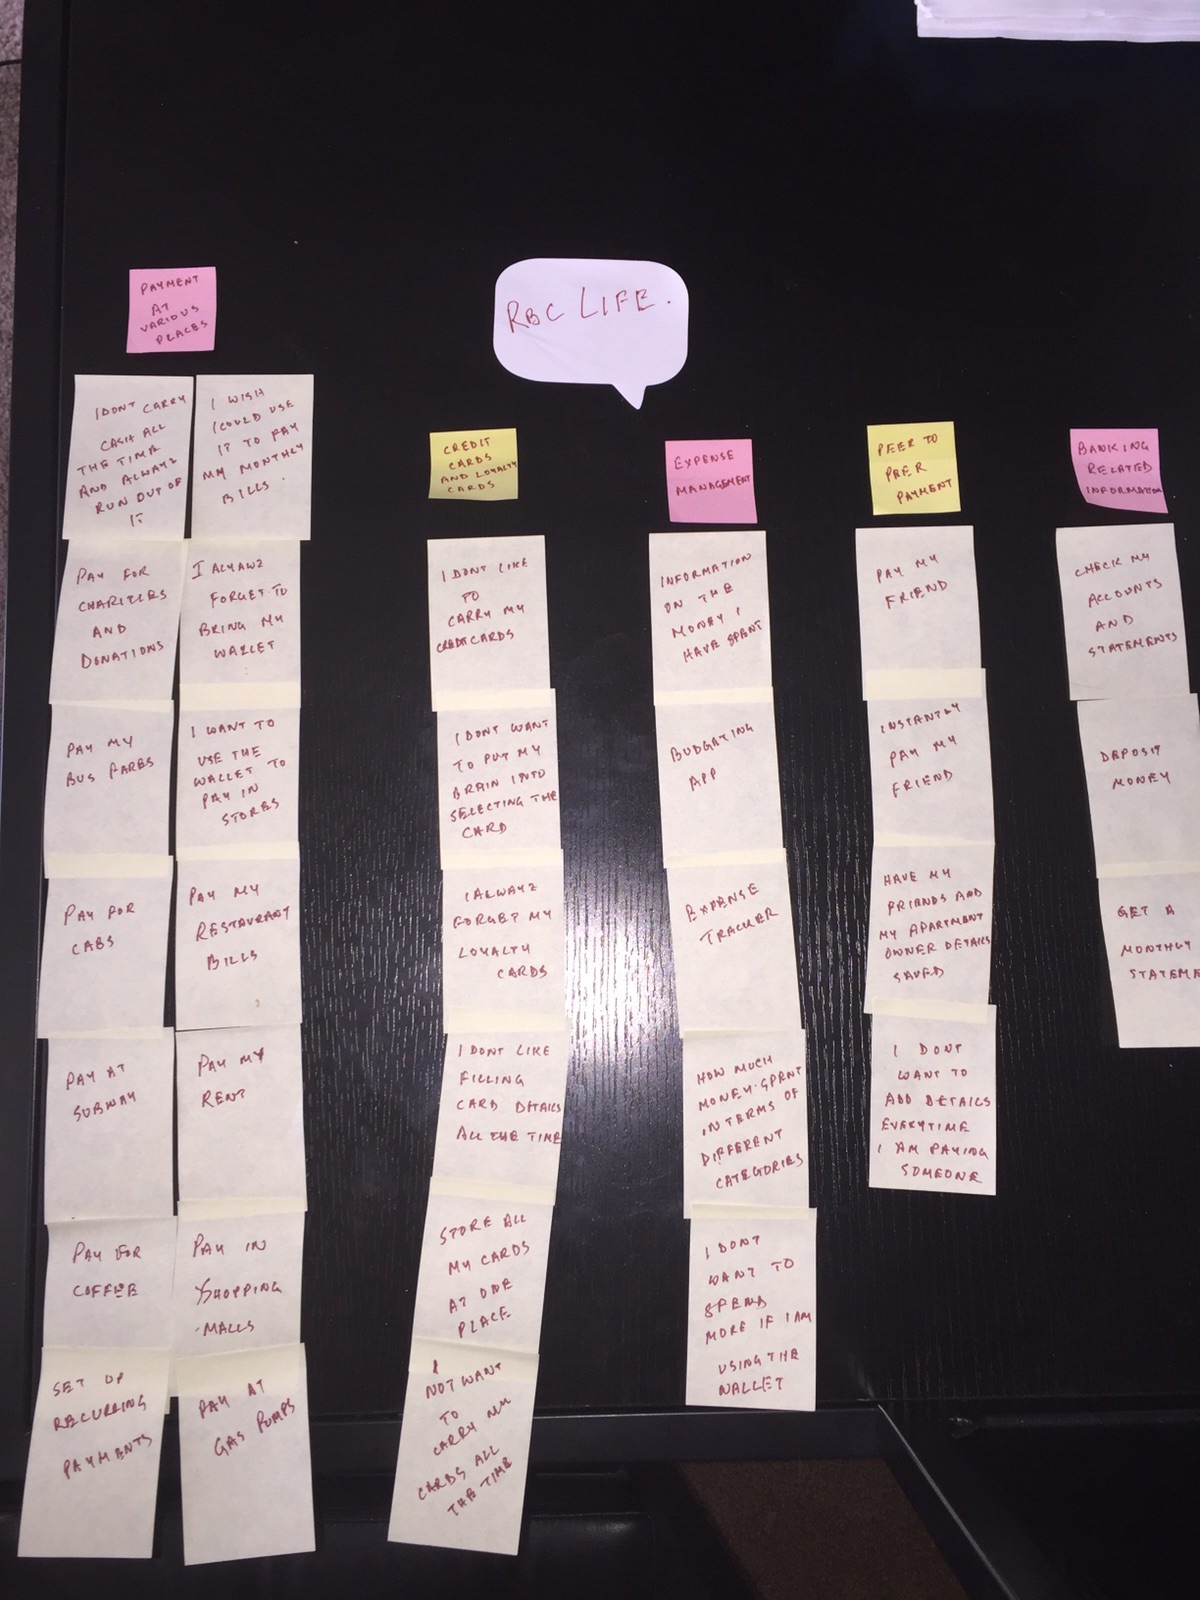 RBC LIFE.
PAYMENT
AT
VARIOUS
PLACES
I DONT CARRY
CASH ALL
THE TIME
AND ALWAYZ
RUN OUT OF
IT
PAY FOR
CHARITIES
AND
DONATIONS
PAY MY
BUS FARES
PAY FOR
CABS
PAY AT
SUBWAY
PAY FOR
COFFEE
SET UP
RECURRING
PAYMENTS
I WISH
I COULD USE
IT TO PAY
MY MONTHLY
BILLS.
I ALYAWZ
FORGET TO
BRING MY
WALLET
I WANT TO
USE THE
WALLET TO
PAY IN
STORES
PAY MY
RESTAURANT
BILLS
PAY MY
RENT
PAY IN
SHOPPING
MALLS
PAY AT
GAS PUMPS
CREDIT
CARDS
AND LOYALTY
CARDS
I DONT LIKE
TO
CARRY MY
CREDIT CARDS
I DONT WANT
TO PUT MY
BRAIN INTO
SELECTING THE
CARD
I ALWAYZ
FORGET MY
LOYALTY
CARDS
I DONT LIKE
FILLING
CARD DETAILS
ALL THE TIME
STORE ALL
MY CARDS
AT ONE
PLACE
I
NOT WANT
TO
CARRY MY
CARDS ALL
THE TIME
EXPENSE
MANAGEMENT
INFORMATION
ON THE
MONEY I
HAVE SPENT
BUDGETING
APP
EXPENSE
TRACKER
HOW MUCH
MONEY SPENT
IN TERMS OF
DIFFERENT
CATEGORIES
I DONT
WANT TO
SPEND
MORE IF I AM
USING THE
WALLET
PEER TO
PEER
PAYMENT
PAY MY
FRIEND
INSTANTLY
PAY MY
FRIEND
HAVE MY
FRIENDS AND
MY APARTMENT
OWNER DETAILS
SAVED
I DONT
WANT TO
ADD DETAILS
EVERYTIME
I AM PAYING
SOMEONE
BANKING
RELATED
INFORMATION
CHECK MY
ACCOUNTS
AND
STATEMENTS
DEPOSIT
MONEY
GET A
MONTHLY
STATEME